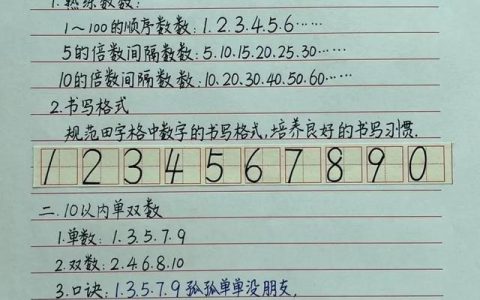 1.熟练数数:
1～100的顺序数数:1.2.3.4.5.6……
5的倍数间隔数数:5.10.15.20.25.30……
10的倍数间隔数数:10.20.30.40.50.60……
2.书写格式
规范田字格中数字的书写格式,培养良好的书写习惯.
1 2 3 4 5 6 7 8 9 0
二.10以内单双数
1.单数:1.3.5.7.9
2.双数:2.4.6.8.10
3.口诀:1.3.5.7.9孤孤单单没朋友,